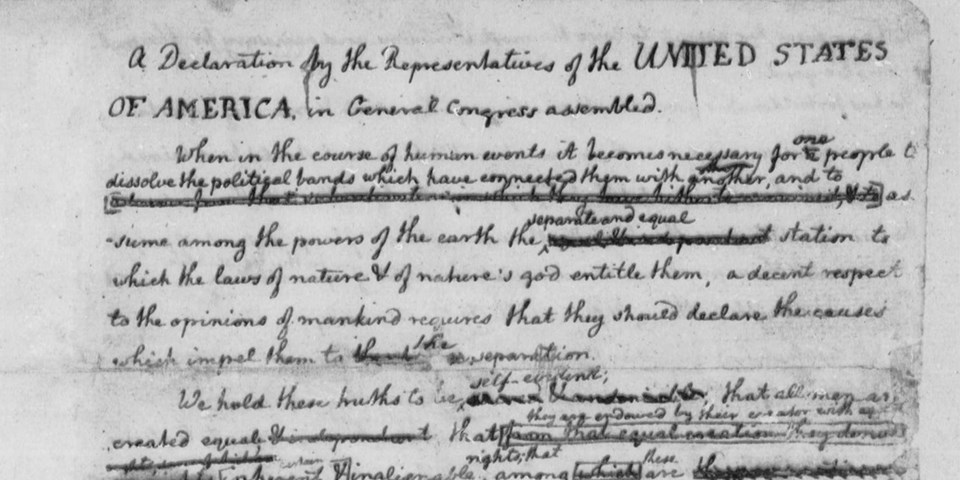 A Declaration by the Representatives of the UNITED STATES
OF AMERICA, in General Congress assembled.
When in the course of human events it becomes necessary for
one
people t
dissolve the political bands which have connected them with another, and to
as
separate and equal
-sume among the powers of the earth the
station to
which the laws of nature & of nature's god entitle them, a decent respect
to the opinions of mankind requires that they should declare the causes
the
which impel them to
separation.
self-evident;
We hold these truths to be
that all men ar
they are endowed by their creator with
created equal & independent that from that equal creation they
rights; that
these
inherent & inalienable, among which are